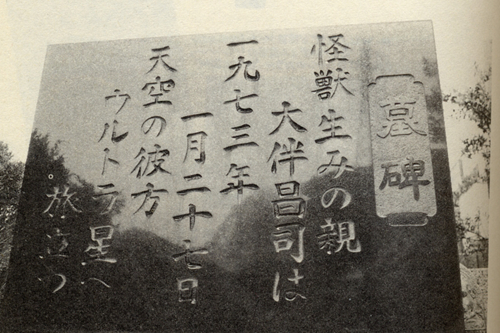 墓碑
怪獣生みの親
大伴昌司は
一九七三年
一月二十七日
天空の彼方
ウルトラ星へ
旅立つ。